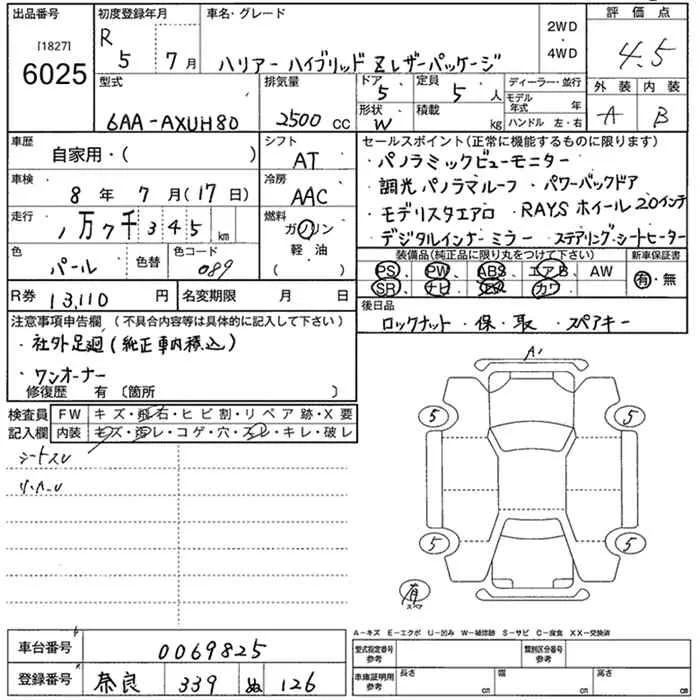 出品番号
[1827]
6025
初度登録年月
R 5 7月
車名・グレード
ハリアー ハイブリッド Z レザーパッケージ
2WD
・
4WD
評価点
4.5
外装 内装
A B
型式
6AA-AXUH80
排気量
2500 CC
ドア
5
定員
5 人
形状
W
積載
kg
ディーラー・並行
モデル年式 年
ハンドル 左・右
車歴
自家用・( )
シフト
AT
車検
8年 7月(17日)
冷房
AAC
走行
1万7千345 km
燃料
ガソリン
軽油
( )
色
パール
色替
色コード
089
R券 13,110 円
名変期限 月 日
セールスポイント(正常に機能するものに限ります)
・パノラミックビューモニター
・調光パノラマルーフ ・パワーバックドア
・モデリスタエアロ ・RAYSホイール20インチ
・デジタルインナーミラー ・ステアリング・シートヒーター
装備品(純正品に限り丸をつけて下さい)
PS、PW、ABS、エアB、AW
SR、ナビ、カワ
新車保証書
有・無
後日品
ロックナット・保・取・スペアキー
注意事項申告欄(不具合内容等は具体的に記入して下さい)
・社外足廻(純正車内積込)
・ワンオーナー
修復歴 有〔箇所 〕
検査員
記入欄
FW キズ・飛石・ヒビ割・リペア跡・X要
内装 キズ・汚レ・コゲ・穴・スレ・キレ・破レ
シートスレ
A1
5
5
5
5
有
スペア
A-キズ E-エクボ U-凹み W-補修跡 S-サビ C-腐食 XX-交換済
車台番号
0069825
登録番号
奈良 339 ぬ 126
型式指定番号
参考
類別区分番号
参考
車庫証明用
参考
長さ cm
幅 cm
高さ cm